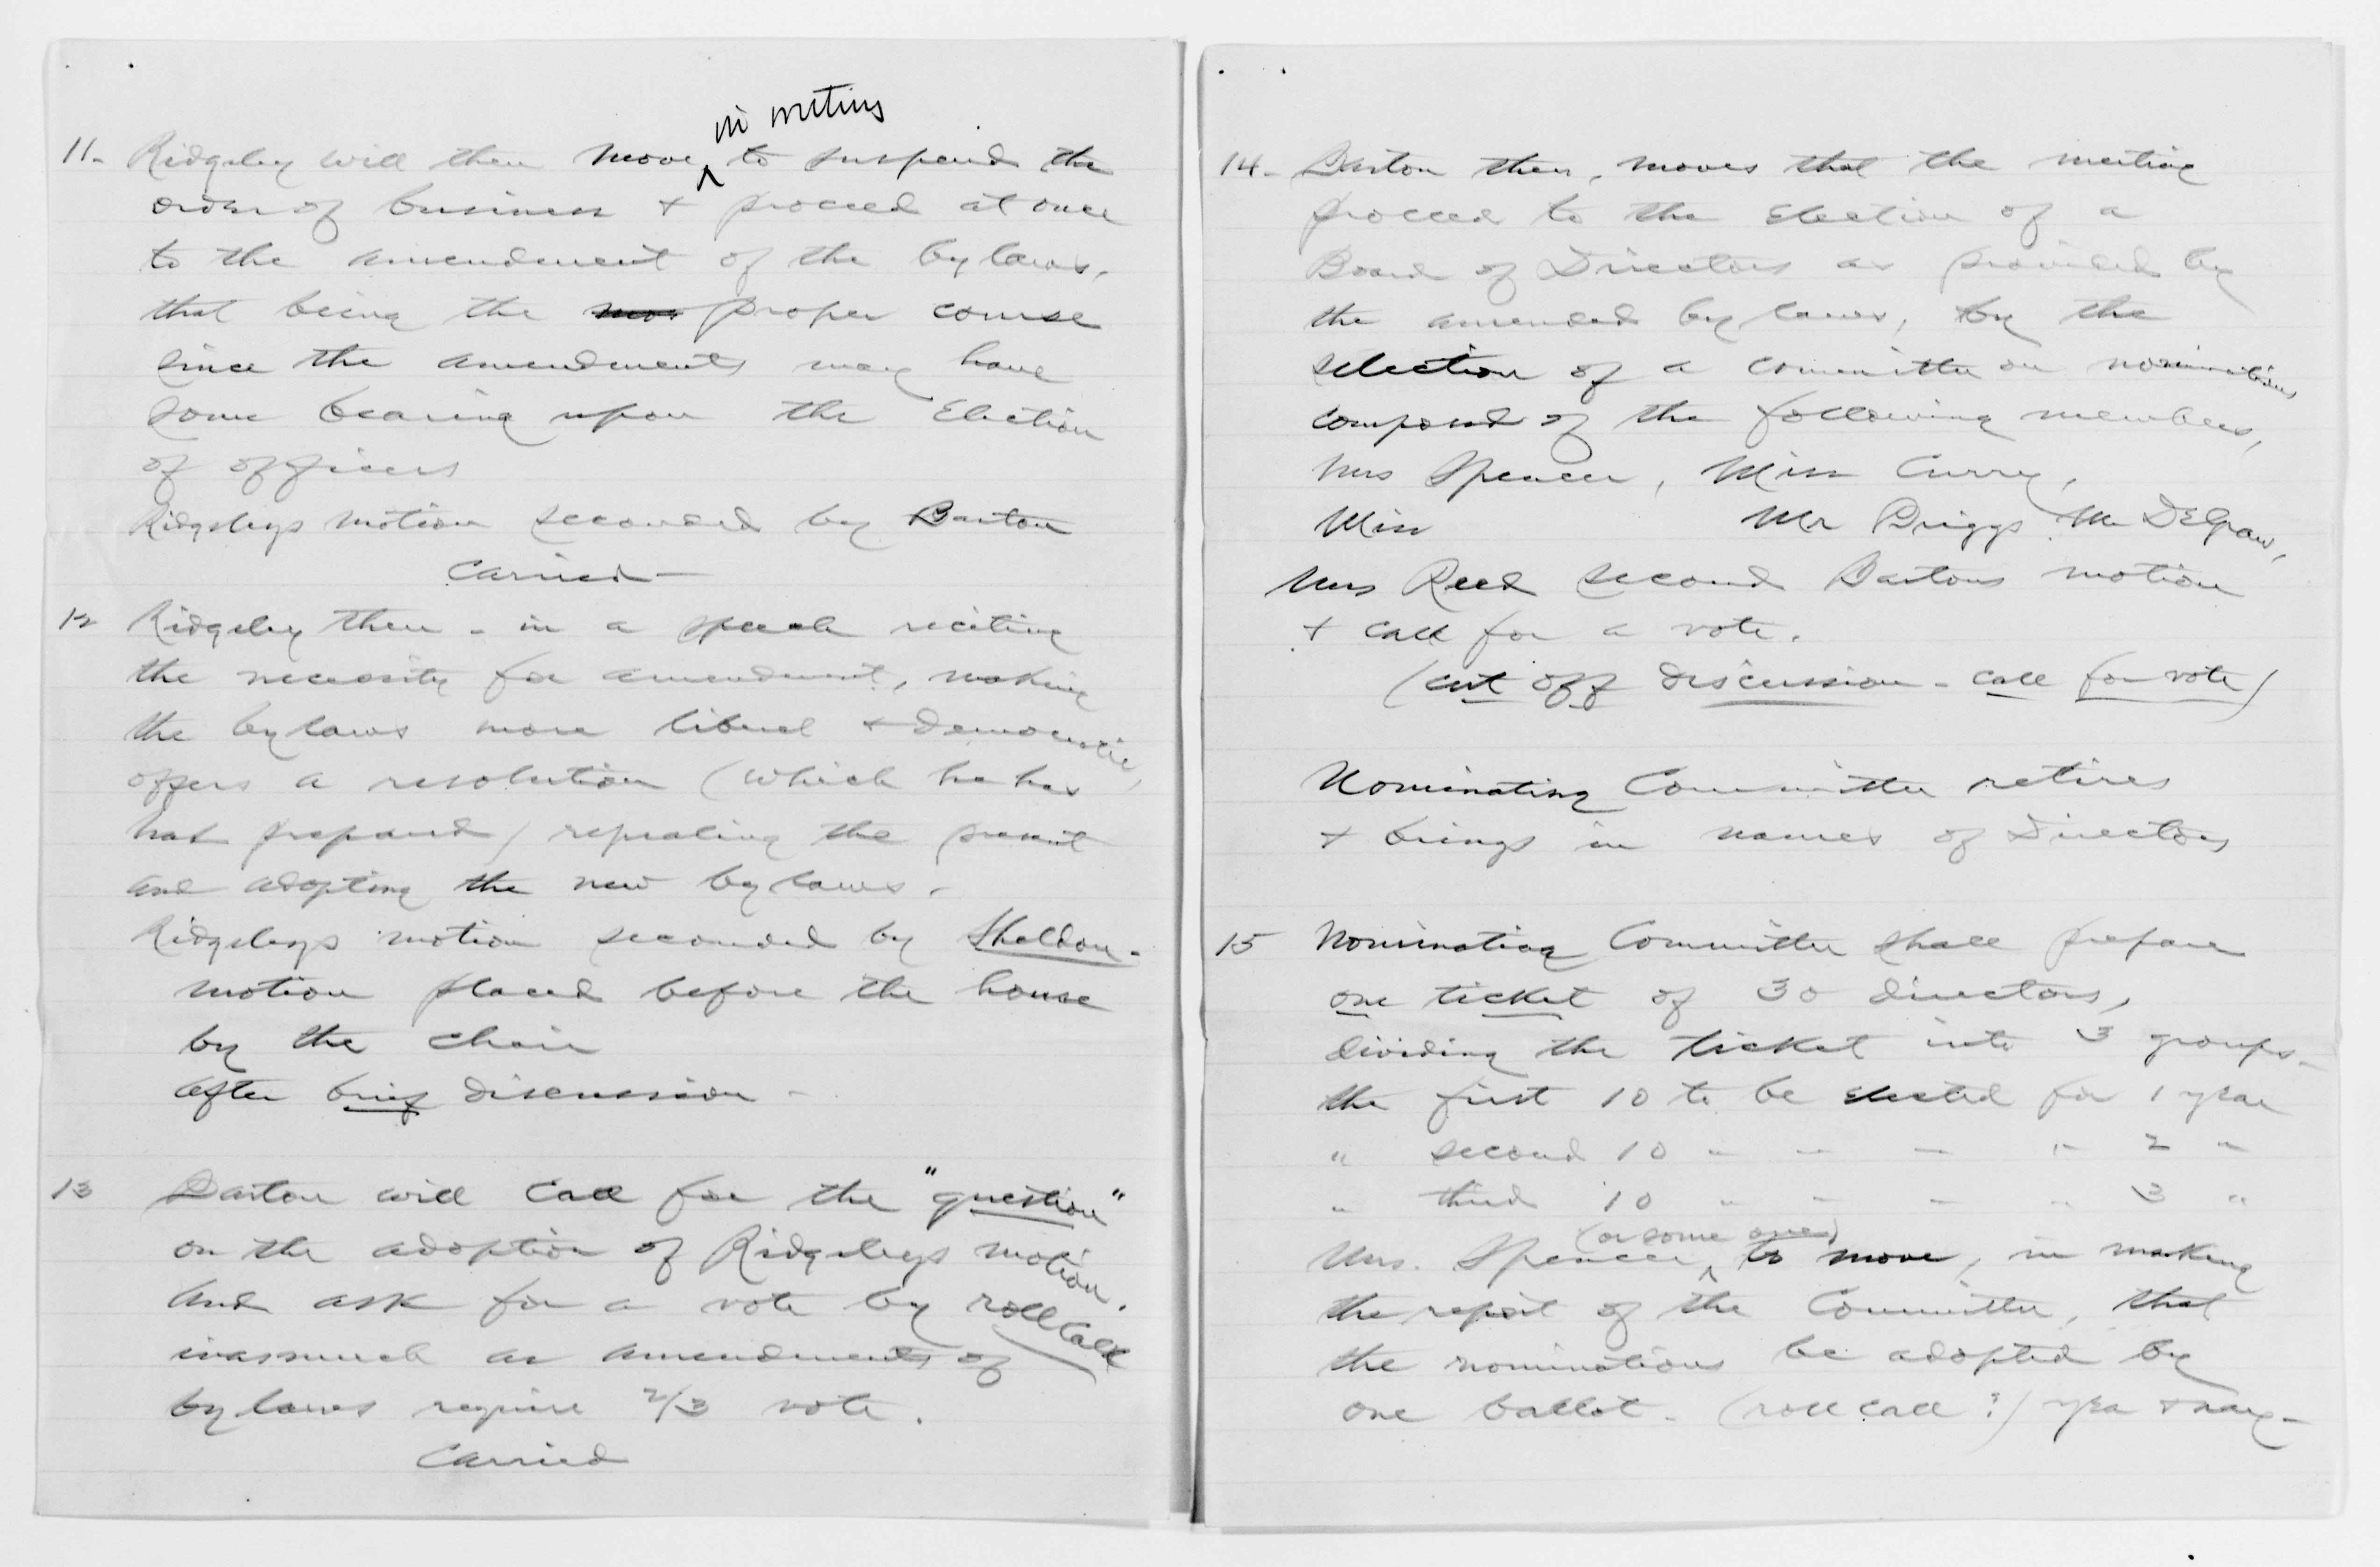 in writing
11- Ridgeley will then move ^ to suspend the
order of business + proceed at once
to the amendment of the by laws,
that being the proper course
since the amendments may have
some bearing upon the Election
of officers
Ridgeleys motion seconded by Barton
Carried —
12 Ridgeley then - in a speech reciting
the necessity for amendment, making
the by laws more liberal + democratic,
offers a resolution (which he has
had prepared) repealing the present
and adopting the new by laws.
Ridgeleys motion seconded by Sheldon -
motion placed before the house
by the chair
after brief discussion -
13 Barton will call for the "question"
on the adoption of Ridgeleys motion.
And ask for a vote by roll call
inasmuch as amendments of
by laws require 2/3 vote.
Carried
14 - Barton then, moves that the meeting
proceed to the election of a
Board of Directors as provided by
the amended by laws, by the
selection of a committee on nominations
composed of the following members,
Mrs Spencer, Miss Curry,
Miss Mr Briggs, Mr DeGraw,
Mrs Reed second Bartons motion
+ call for a vote.
(cut off discussion - call for vote)
Nominating Committee retires
+ brings in names of Directors
15 Nominating Committee shall prepare
one ticket of 30 directors,
dividing the ticket into 3 groups -
the first 10 to be elected for 1 year
" second 10 " " " " 2 "
" third 10 " " " " 3 "
(or some one)
Mrs. Spencer ^ to move, in making
the report of the Committee, that
the nominations be adopted by
one ballot - (roll call?) yea + nay -